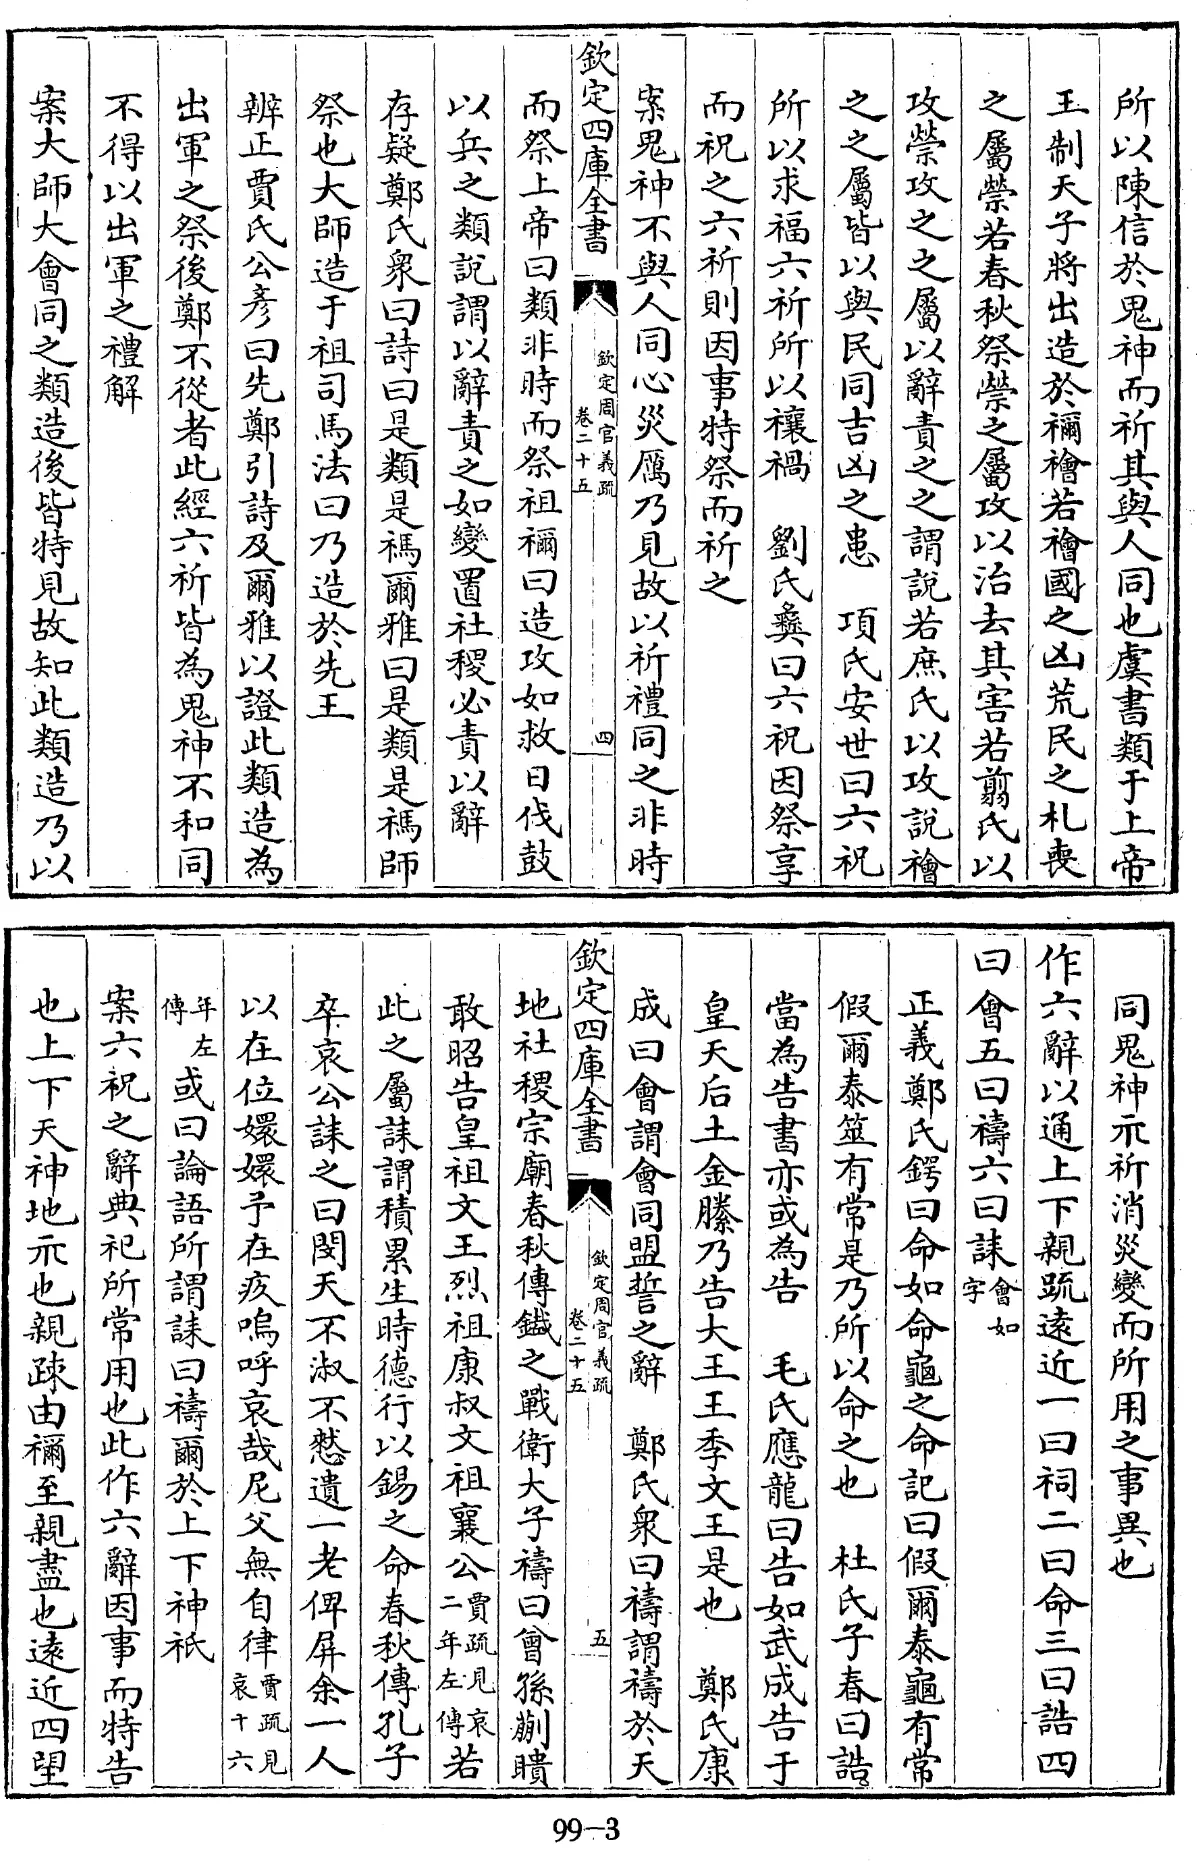 所以陳信於鬼神而祈其與人同也虞書類于上帝
王制天子將出造於禰禬若禬國之凶荒民之札喪
之屬禜若春秋祭禜之屬攻以治去其害若翦氏以
攻禜攻之之屬以辭責之之謂説若庶氏以攻説禬
之之屬皆以與民同吉凶之患　項氏安世曰六祝
所以求福六祈所以禳禍　劉氏彝曰六祝因祭享
而祝之六祈則因事特祭而祈之
案鬼神不與人同心災厲乃見故以祈禮同之非時
欽定四庫全書
欽定周官義疏
卷二十五
四
而祭上帝曰類非時而祭祖禰曰造攻如救日伐鼓
以兵之類説謂以辭責之如變置社稷必責以辭
存疑鄭氏衆曰詩曰是類是禡爾雅曰是類是禡師
祭也大師造于祖司馬法曰乃造於先王
辨正賈氏公彥曰先鄭引詩及爾雅以證此類造為
出軍之祭後鄭不從者此經六祈皆為鬼神不和同
不得以出軍之禮解
案大師大會同之類造後皆特見故知此類造乃以
同鬼神示祈消災變而所用之事異也
作六辭以通上下親疏遠近一曰祠二曰命三曰誥四
曰會五曰禱六曰誄會如字
正義鄭氏鍔曰命如命龜之命記曰假爾泰龜有常
假爾泰筮有常是乃所以命之也　杜氏子春曰誥
當為告書亦或為告　毛氏應龍曰告如武成告于
皇天后土金縢乃告大王王季文王是也　鄭氏康
成曰會謂會同盟誓之辭　鄭氏衆曰禱謂禱於天
欽定四庫全書
欽定周官義疏
卷二十五
五
地社稷宗廟春秋傳鐵之戰衛大子禱曰曾孫蒯聵
敢昭告皇祖文王烈祖康叔文祖襄公賈疏見哀二年左傳若
此之屬誄謂積累生時德行以錫之命春秋傳孔子
卒哀公誄之曰閔天不淑不憖遺一老俾屏余一人
以在位嬛嬛予在疚嗚呼哀哉尼父無自律賈疏見哀十六
年左傳或曰論語所謂誄曰禱爾於上下神祇
案六祝之辭典祀所常用也此作六辭因事而特告
也上下天神地示也親疎由禰至親盡也遠近四望
99-3